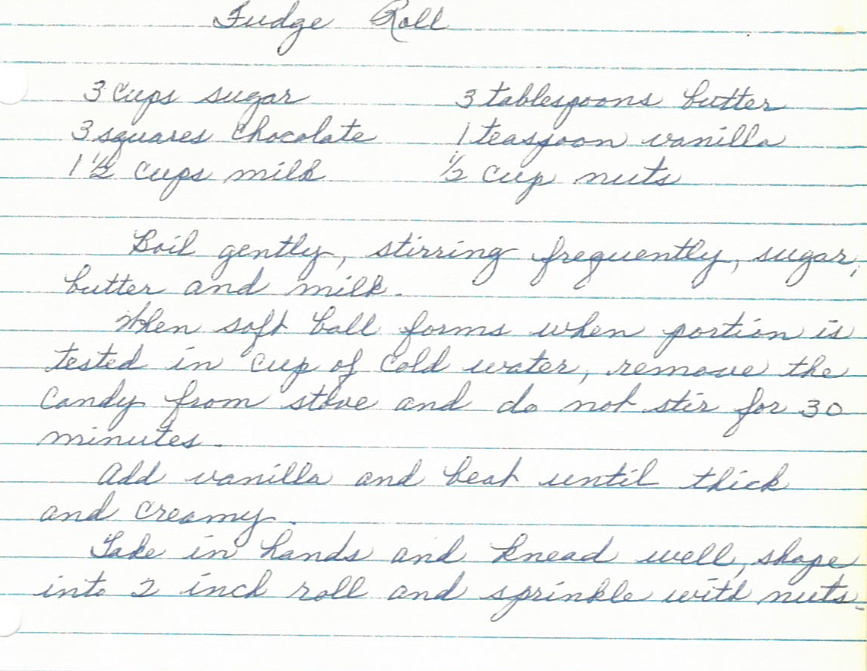 Fudge Roll
3 cups sugar 3 tablespoons butter
3 squares chocolate 1 teaspoon vanilla
1 1/2 cups milk 1/2 cup nuts
Boil gently, stirring frequently, sugar,
butter and milk.
When soft ball forms when portion is
tested in cup of cold water, remove the
candy from stove and do not stir for 30
minutes.
Add vanilla and beat until thick
and creamy.
Take in hands and knead well, shape
into 2 inch roll and sprinkle with nuts.